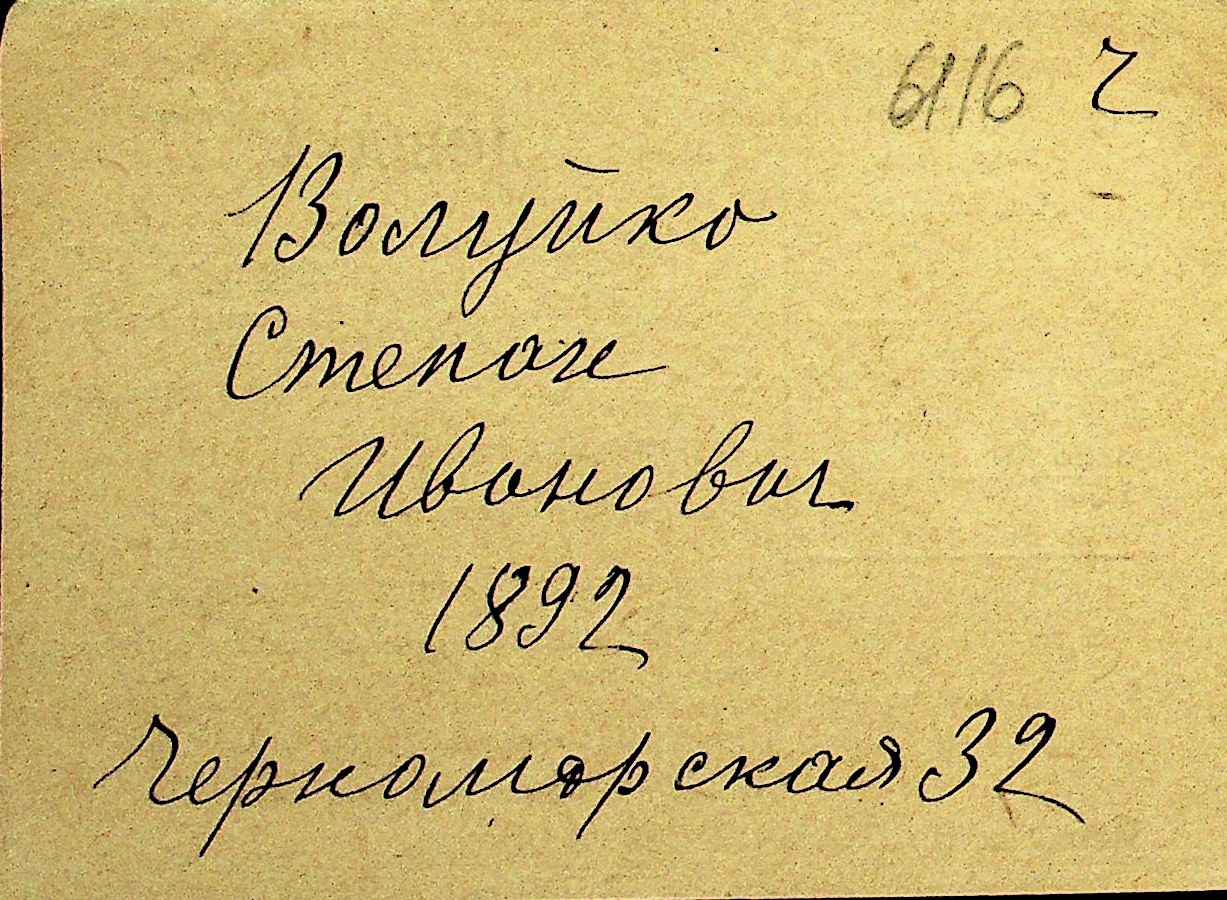 6116 ч
Волуйко
Степан
Иванович
1892
Черноморская 32